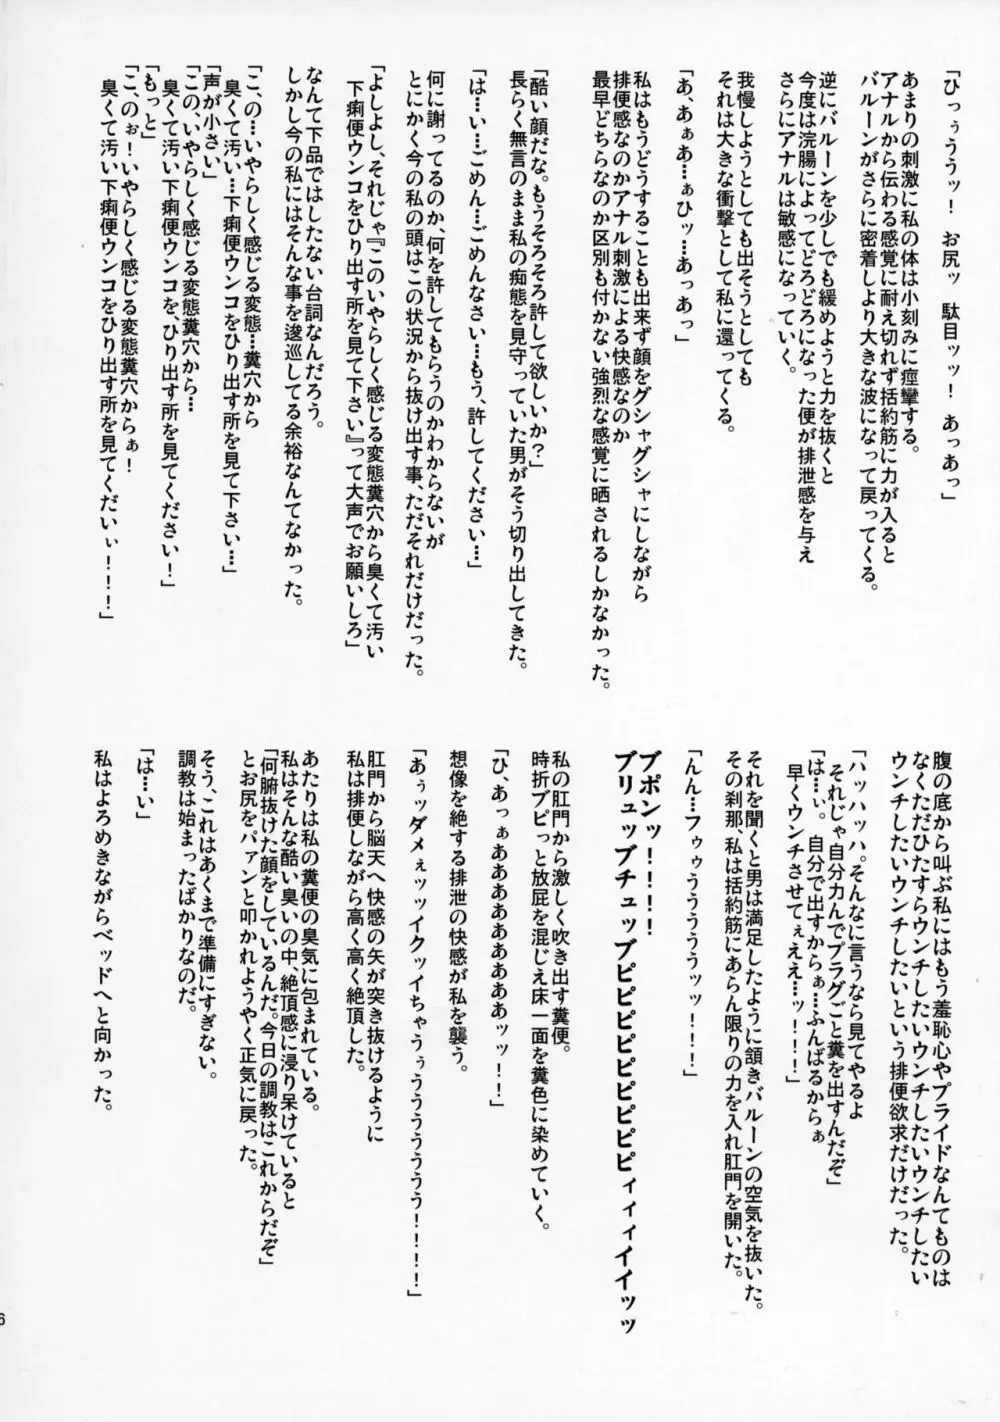 「ひっぅううッ！　お尻ッ　駄目ッッ！　あっあっ」
あまりの刺激に私の体は小刻みに痙攣する。
アナルから伝わる感覚に耐え切れず括約筋に力が入ると
バルーンがさらに密着しより大きな波になって戻ってくる。
逆にバルーンを少しでも緩めようと力を抜くと
今度は浣腸によってどろどろになった便が排泄感を与え
さらにアナルは敏感になっていく。
我慢しようとしても出そうとしても
それは大きな衝撃として私に還ってくる。
「あ、あぁあ…ぁひッ…あっあっ」
私はもうどうすることも出来ず顔をグシャグシャにしながら
排便感なのかアナル刺激による快感なのか
最早どちらなのか区別も付かない強烈な感覚に晒されるしかなかった。
「酷い顔だな。もうそろそろ許して欲しいか？」
長らく無言のまま私の痴態を見守っていた男がそう切り出してきた。
「は…い…ごめん…ごめんなさい…もう、許してください…」
何に謝ってるのか、何を許してもらうのかわからないが
とにかく今の私の頭はこの状況から抜け出す事、ただそれだけだった。
「よしよし、それじゃ『このいやらしく感じる変態糞穴から臭くて汚い
下痢便ウンコをひり出す所を見て下さい』って大声でお願いしろ」
なんて下品ではしたない台詞なんだろう。
しかし今の私にはそんな事を逡巡してる余裕なんてなかった。
「こ、の…いやらしく感じる変態…糞穴から
臭くて汚い…下痢便ウンコをひり出す所を見て下さい…」
「声が小さい」
「この、いやらしく感じる変態糞穴から…
臭くて汚い下痢便ウンコを、ひり出す所を見てください！」
「もっと」
「こ、のぉ！いやらしく感じる変態糞穴からぁ！
臭くて汚い下痢便ウンコをひり出す所を見てくだいぃ！！！」
腹の底から叫ぶ私にはもう羞恥心やプライドなんてものは
なくただひたすらウンチしたいウンチしたいウンチしたい
ウンチしたいウンチしたいウンチしたいという排便欲求だけだった。
「ハッハッハ。そんなに言うなら見てやるよ
それじゃ自分力んでプラグごと糞を出すんだぞ」
「は…ぃ。自分で出すからぁ…ふんばるからぁ
早くウンチさせてぇええ…ッ！！！」
それを聞くと男は満足したように頷きバルーンの空気を抜いた。
その刹那、私は括約筋にあらん限りの力を入れ肛門を開いた。
「んん…フゥゥうううううッッ！！！」
ブポンッ！！！！
ブリュッブチュッブピピピピピピピピピィィィイイッッ
私の肛門から激しく吹き出す糞便。
時折ブピっと放屁を混じえ床一面を糞色に染めていく。
「ひ、あっぁああああああああッッ！！」
想像を絶する排泄の快感が私を襲う。
「あぅッダメぇッッイクッイちゃうぅううううううう！！！！」
肛門から脳天へ快感の矢が突き抜けるように
私は排便しながら高く高く絶頂した。
あたりは私の糞便の臭気に包まれている。
私はそんな酷い臭いの中、絶頂感に浸り呆けていると
「何腑抜けた顔をしているんだ。今日の調教はこれからだぞ」
とお尻をパァンと叩かれようやく正気に戻った。
そう、これはあくまで準備にすぎない。
調教は始まったばかりなのだ。
「は…い」
私はよろめきながらベッドへと向かった。
6